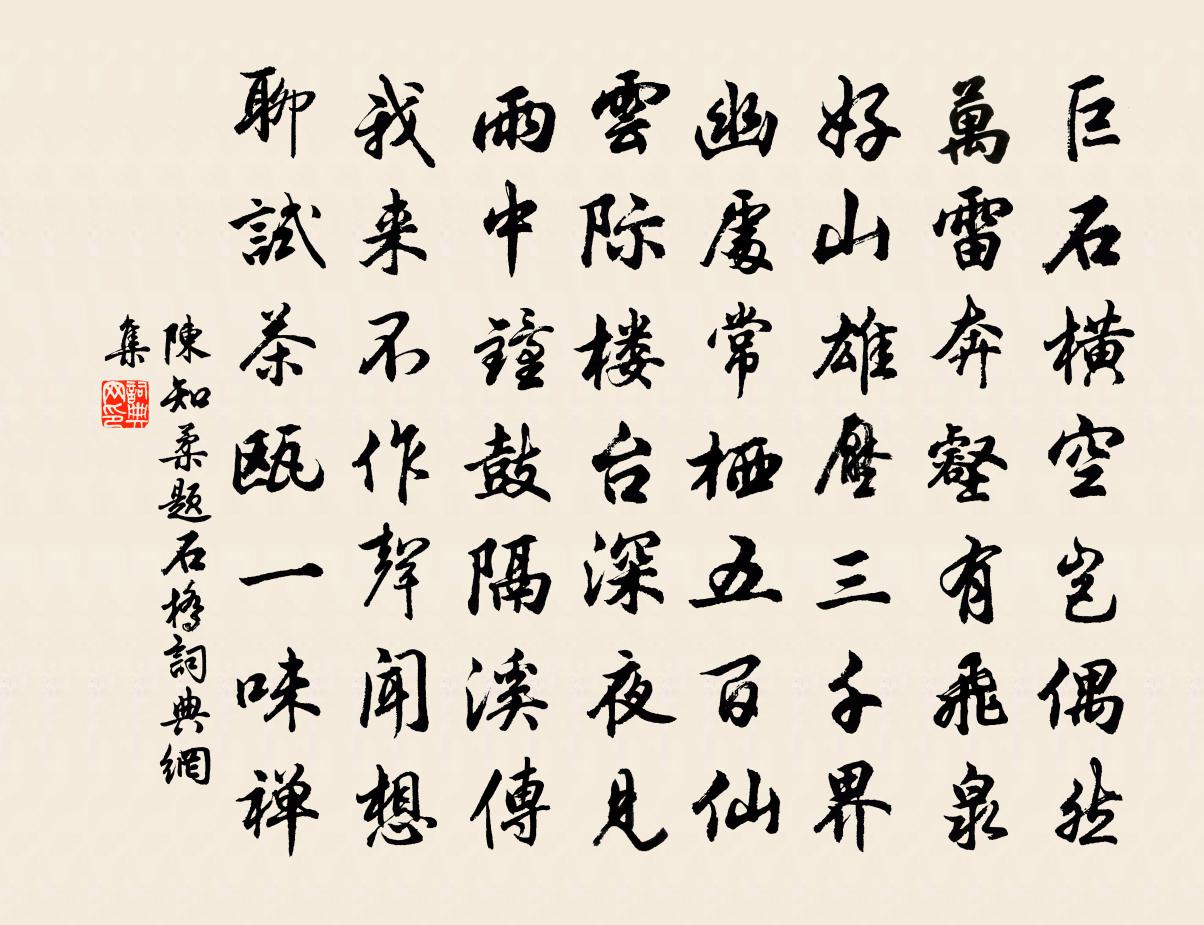 巨石橫空岂偶然
萬雷奔壑有飛泉
好山雄壓三千界
幽處常栖五百仙
雲际楼台深夜見
雨中鐘鼓隔溪傳
我来不作聲聞想
聊試茶瓯一味禅
陳知柔题石橋詞典網
集
詞典网印